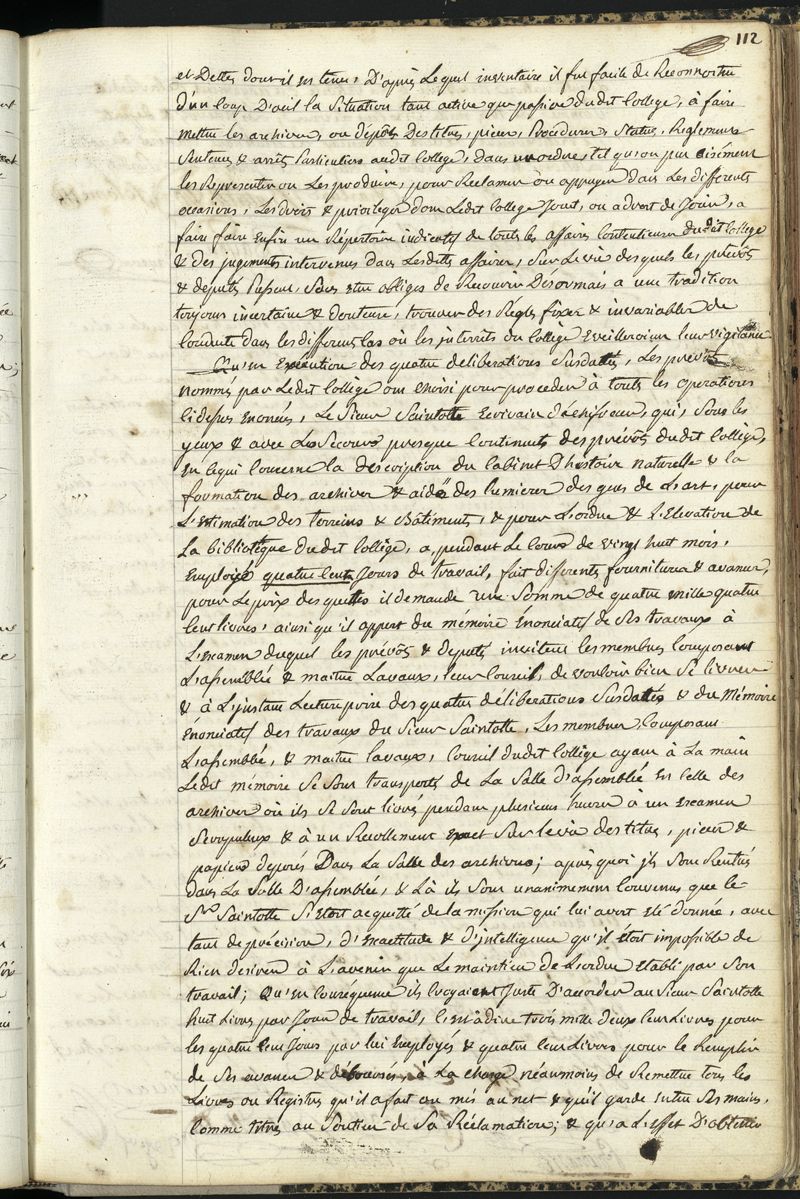 112
et Dettes dont il est tenu, D'après Lequel inventaire il fut facile de Reconnoitre
d'un Coup D'oeil la Situation tant active que passive dudit College, à faire
mettre les archives, ou dépôts Des titres, pieces, Procédures, Statuts, Reglements
Sentences & arrêts Particuliers audit College, dans un ordre, tel qu'on put aisément
les Représenter ou Les produire, pour Reclamer ou appuyer dans Les differents
occasions, Les droits & privileges dont Ledit College Jouit, ou a droit de Jouir, a
faire faire Enfin un Répertoire indicatif de touts les affaires Contentieuses dudit College
& des jugements intervenus dans Lesdites affaires, Sur Le vu desquels les prévôts
& députés Pussent, Sans etre obligés de Recourir Désormais a une tradition
toujours incertaine & douteuse, trouver des Régles fixes & invariables de
Conduite dans les differents Cas où les interrêts du Collège Eveilleroient leur Vigilance
Qu'en Exécution des quatre deliberations Susdattés, Les prévôts
nommés par Ledit Collège ont choisi pour proceder à touts les operations
Cidessus Enoncés, Le Sieur Saintotte Ecrivain déchiffreur, qui, Sous les
yeux & avec Le Secours presque Continuels des prévôts dudit Collège,
En Cequi Concerne la description du Cabinet D'histoire naturelle & la
formation des archives & aidé des lumieres des gens de L'art, pour
L'Estimation des terreins & Bâtiments, & pour L'ordre & L'Elevation de
La bibliotèque dudit Collège, a, pendant Le Cours de vingt huit mois,
Employé quatre Cent Jours de travail, fait differents fournitures & avances,
pour Le prix desquelles il demande une Somme de quatre mille quatre
Cent Livres, ainsi qu'il appert du mémoire Enonciatif de Ses travaux à
L'Examen duquel les prévôts & députés invitent les membres Composant
L'assemblée & maitre Lavaux, leur Conseil, de vouloir bien Se Livrer
& à L'instant Lecture prise des quatre déliberations Susdattés & du Mémoire
Enonciatif des travaux du Sieur Saintotte, Les membres Composant
L'assemblée, & maitre Lavaux, Conseil dudit Collège ayant à La main
Ledit mémoire Se Sont transportés de La Salle d'assemblée En Celle des
archives où ils Se Sont livrés pendant plusieurs heures à un Examen
Scrupuleux & à un Recollement Exact Sur le vu des titres, pieces &
papiers déposés Dans La Salle des archives; après quoi ils Sont Rentrés
dans La Salle D'assemblée, & Là ils Sont unanimement Convenus que le
Sr. Saintotte S'Etoit acquitté de la mission qui lui avoit Eté donnée, avec
tant de précision, d'Exactitude & d'intelligence qu'il étoit impossible de
Rien desirer à L'avenir que Le maintien de L'ordre Etabli par Son
travail; Qu'en Conséquence ils Croyaient Juste D'accorder au Sieur Saintotte
huit Livres par Jour de travail, C'est à dire trois mille deux Cent Livres pour
les quatre Cent Jours par lui Employés & quatre Cent Livres pour le Remplir
de Ses avances & déboursés, à La charge néanmoins de Remettre tous les
Livres ou Registres qu'il a fait ou mis au net & qu'il garde Entre Ses mains,
Comme titres au Soutien de Sa Réclamation; & qu'a L'effet D'obtenir